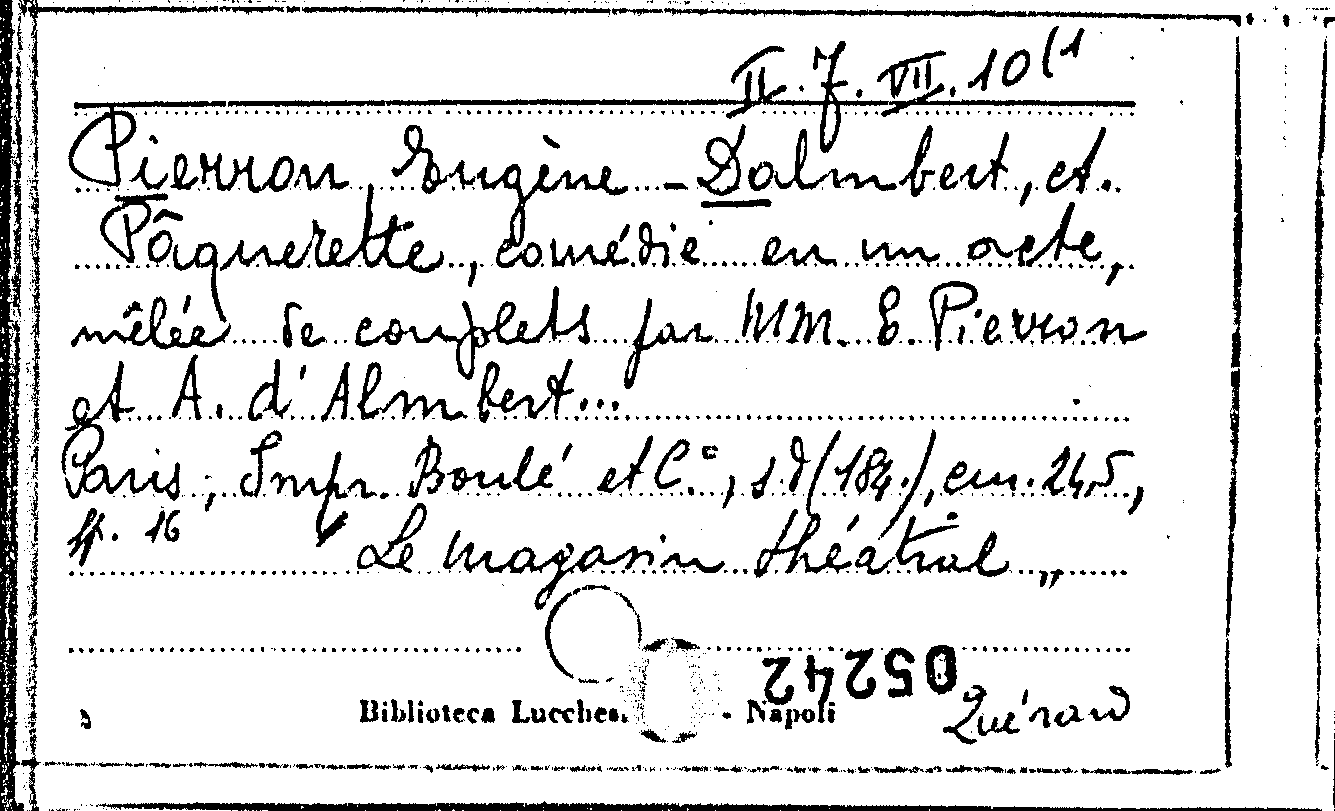 II. 7. VII. 10(1
Pierron, Eugène - Dalmbert, et.
Pâquerette, comédie en un acte,
mêlée de couplets par MM. E. Pierron
et A. d'Almbert...
Paris, Impr. Boulé et C.e, s.d (184.), cm. 24,5,
pp. 16 " Le magasin théâtral „
05242
Biblioteca Lucches. - Napoli
Quérard